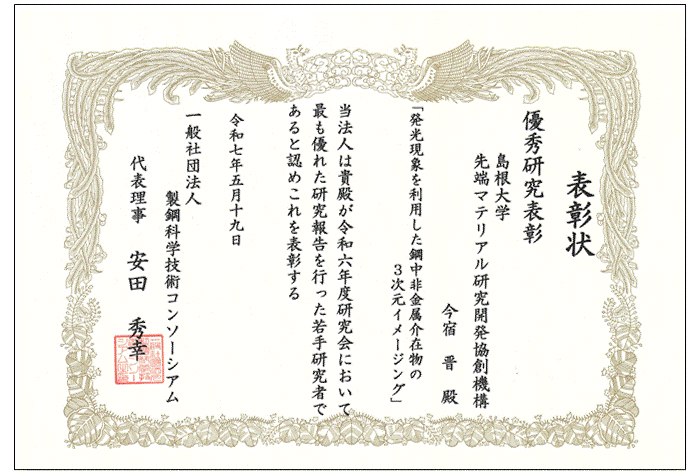 表彰状
優秀研究表彰
島根大学
先端マテリアル研究開発協創機構
今宿 晋 殿
「発光現象を利用した鋼中非金属介在物の
３次元イメージング」
当法人は貴殿が令和六年度研究会において
最も優れた研究報告を行った若手研究者で
あると認めこれを表彰する
令和七年五月十九日
一般社団法人
製鋼科学技術コンソーシアム
代表理事 安田 秀幸